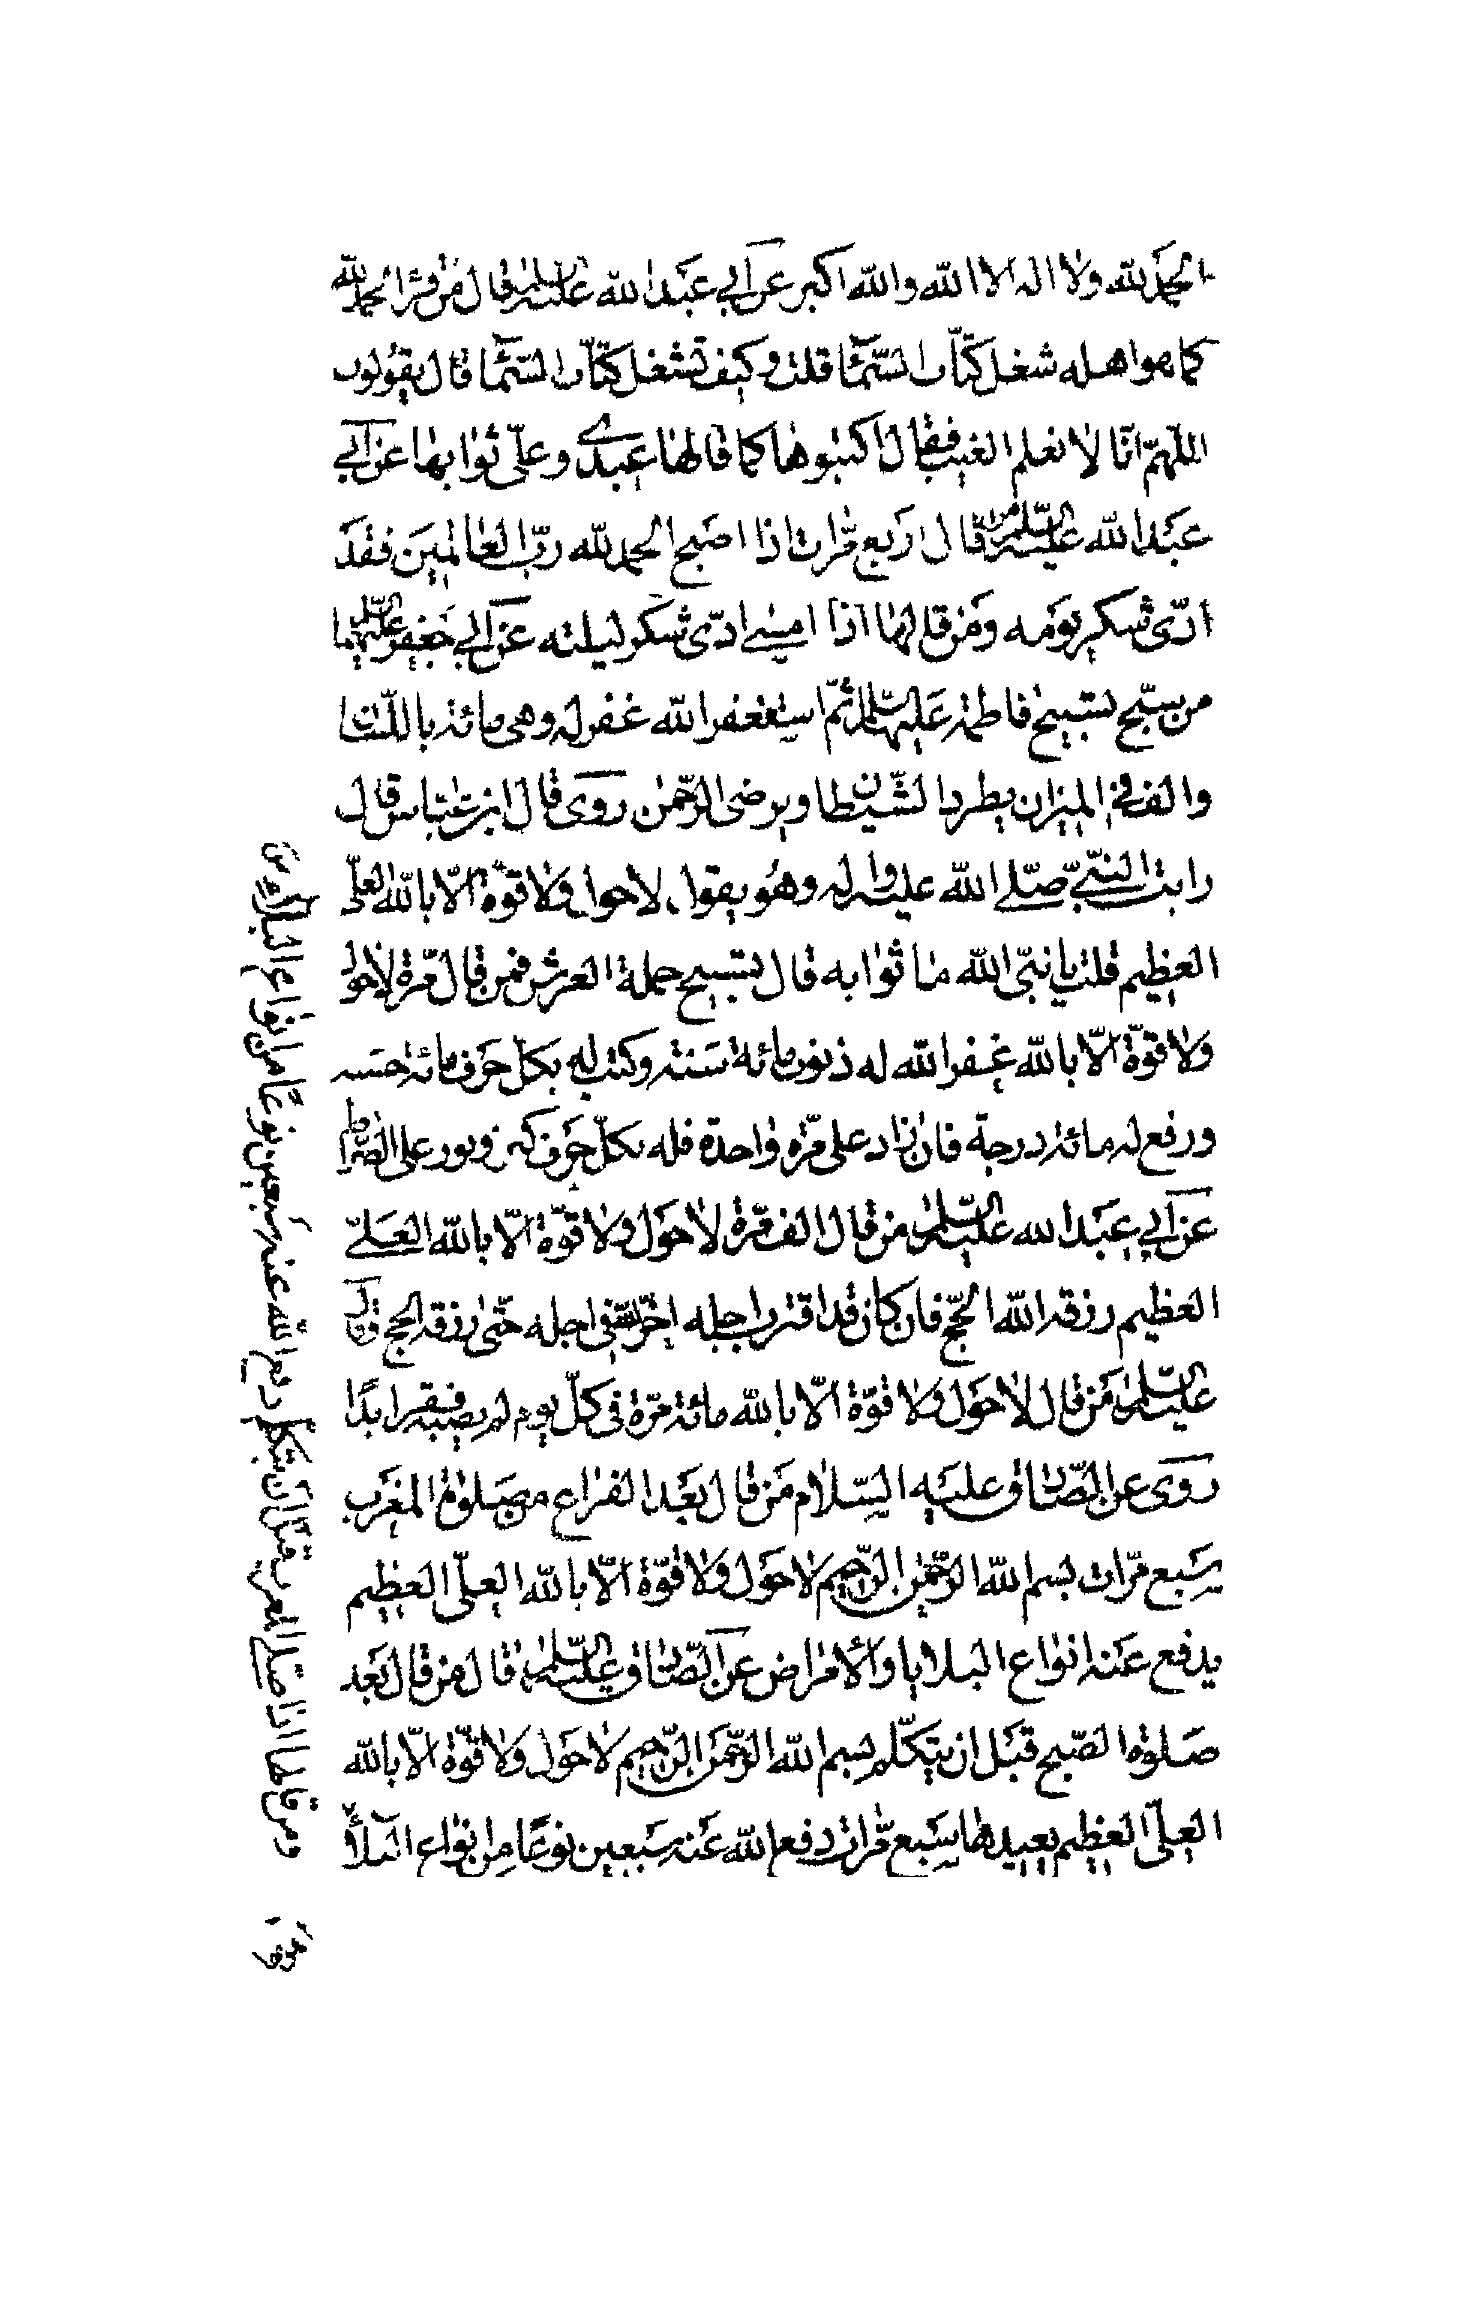 الحمد لله ولا اله الا الله والله اكبر عن ابي عبد الله عليه السلم قال من قرأ الحمد لله
كما هو اهله شغل كتّاب السّمآء قلت وكيف تشغل كتّاب السّمآء قال يقولون
اللّهمّ انّا لا نعلم الغيب فقال اكتبوها كما قالها عبدي وعليّ ثوابها عن ابي
عبد الله عليه السّلم من قال اربع مرّات اذا اصبح الحمد لله ربّ العالمين فقد
ادّى شكر يومه ومن قالها اذا امسى ادّى شكر ليلته عن ابي جعفر عليهما السّلم
من سبّح تسبيح فاطمة عليها السّلم ثمّ استغفر الله غفر له وهي مائة باللّسان
والف في الميزان يطرد الشّيطان ويرضى الرّحمن روى قال ابن عبّاس قال
رايت النّبيّ صلّى الله عليه واله وهو يقول لا حول ولا قوّة الّا بالله العليّ
العظيم قلت يا نبيّ الله ما ثوابه قال تسبيح حملة العرش فمن قال مرّة لا حول
ولا قوّة الّا بالله غفر الله له ذنوب مائة سنة وكتب له بكلّ حرف مائة حسنه
ورفع له مائة درجة فان زاد على مرّه واحدة فله بكلّ حرف ونور على الصّراط
عن ابي عبد الله عليه السّلم من قال الف مرّة لا حول ولا قوّة الّا بالله العليّ
العظيم رزقه الله الحجّ فان كان قد اقترب اجله اخّر الله في اجله حتّى رزقه الحج وقال
عليه السّلم من قال لا حول ولا قوّة الّا بالله مائة مرّة في كلّ يوم لم يصبه فقر ابدًا
روى عن الصّادق عليه السّلام من قال بعد الفراغ من صلوة المغرب
سبع مرّات بسم الله الرّحمن الرّحيم لا حول ولا قوّة الّا بالله العليّ العظيم
يدفع عنه انواع البلايا والأمراض عن الصّادق عليه السّلم قال من قال بعد
صلوة الصّبح قبل ان يتكلّم بسم الله الرّحمن الرّحيم لا حول ولا قوّة الّا بالله
العليّ العظيم يعيدها سبع مرّات دفع الله عنه سبعين نوعًا من انواع البلآء
ومن قالها اذا صلى المغرب قبل ان يتكلّم دفع الله عنه سبعين نوعًا من انواع البلآء